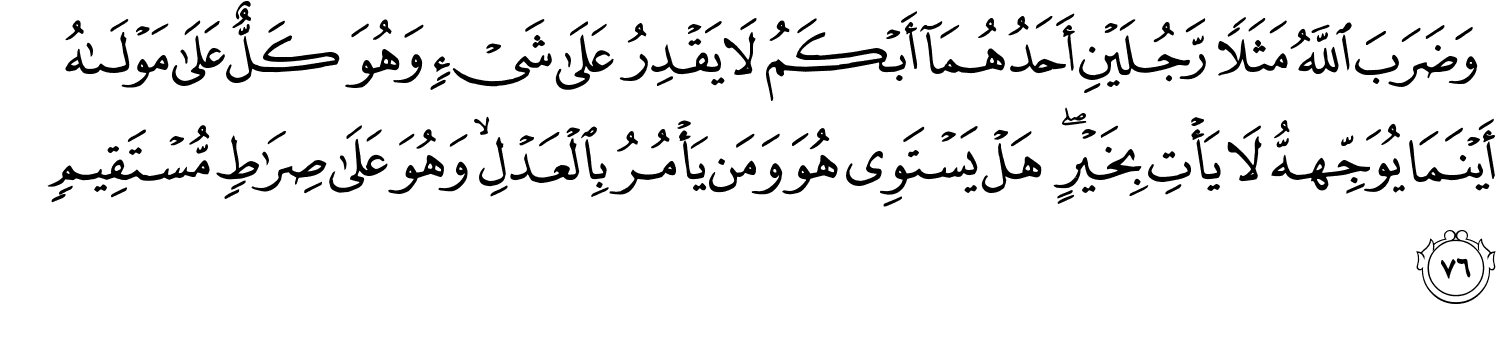 وَضَرَبَ ٱللَّهُ مَثَلًا رَّجُلَيْنِ أَحَدُهُمَآ أَبْكَمُ لَا يَقْدِرُ عَلَىٰ شَىْءٍ وَهُوَ كَلٌّ عَلَىٰ مَوْلَىٰهُ
أَيْنَمَا يُوَجِّههُّ لَا يَأْتِ بِخَيْرٍ ۖ هَلْ يَسْتَوِى هُوَ وَمَن يَأْمُرُ بِٱلْعَدْلِ ۙ وَهُوَ عَلَىٰ صِرَٰطٍ مُّسْتَقِيمٍ
٧٦